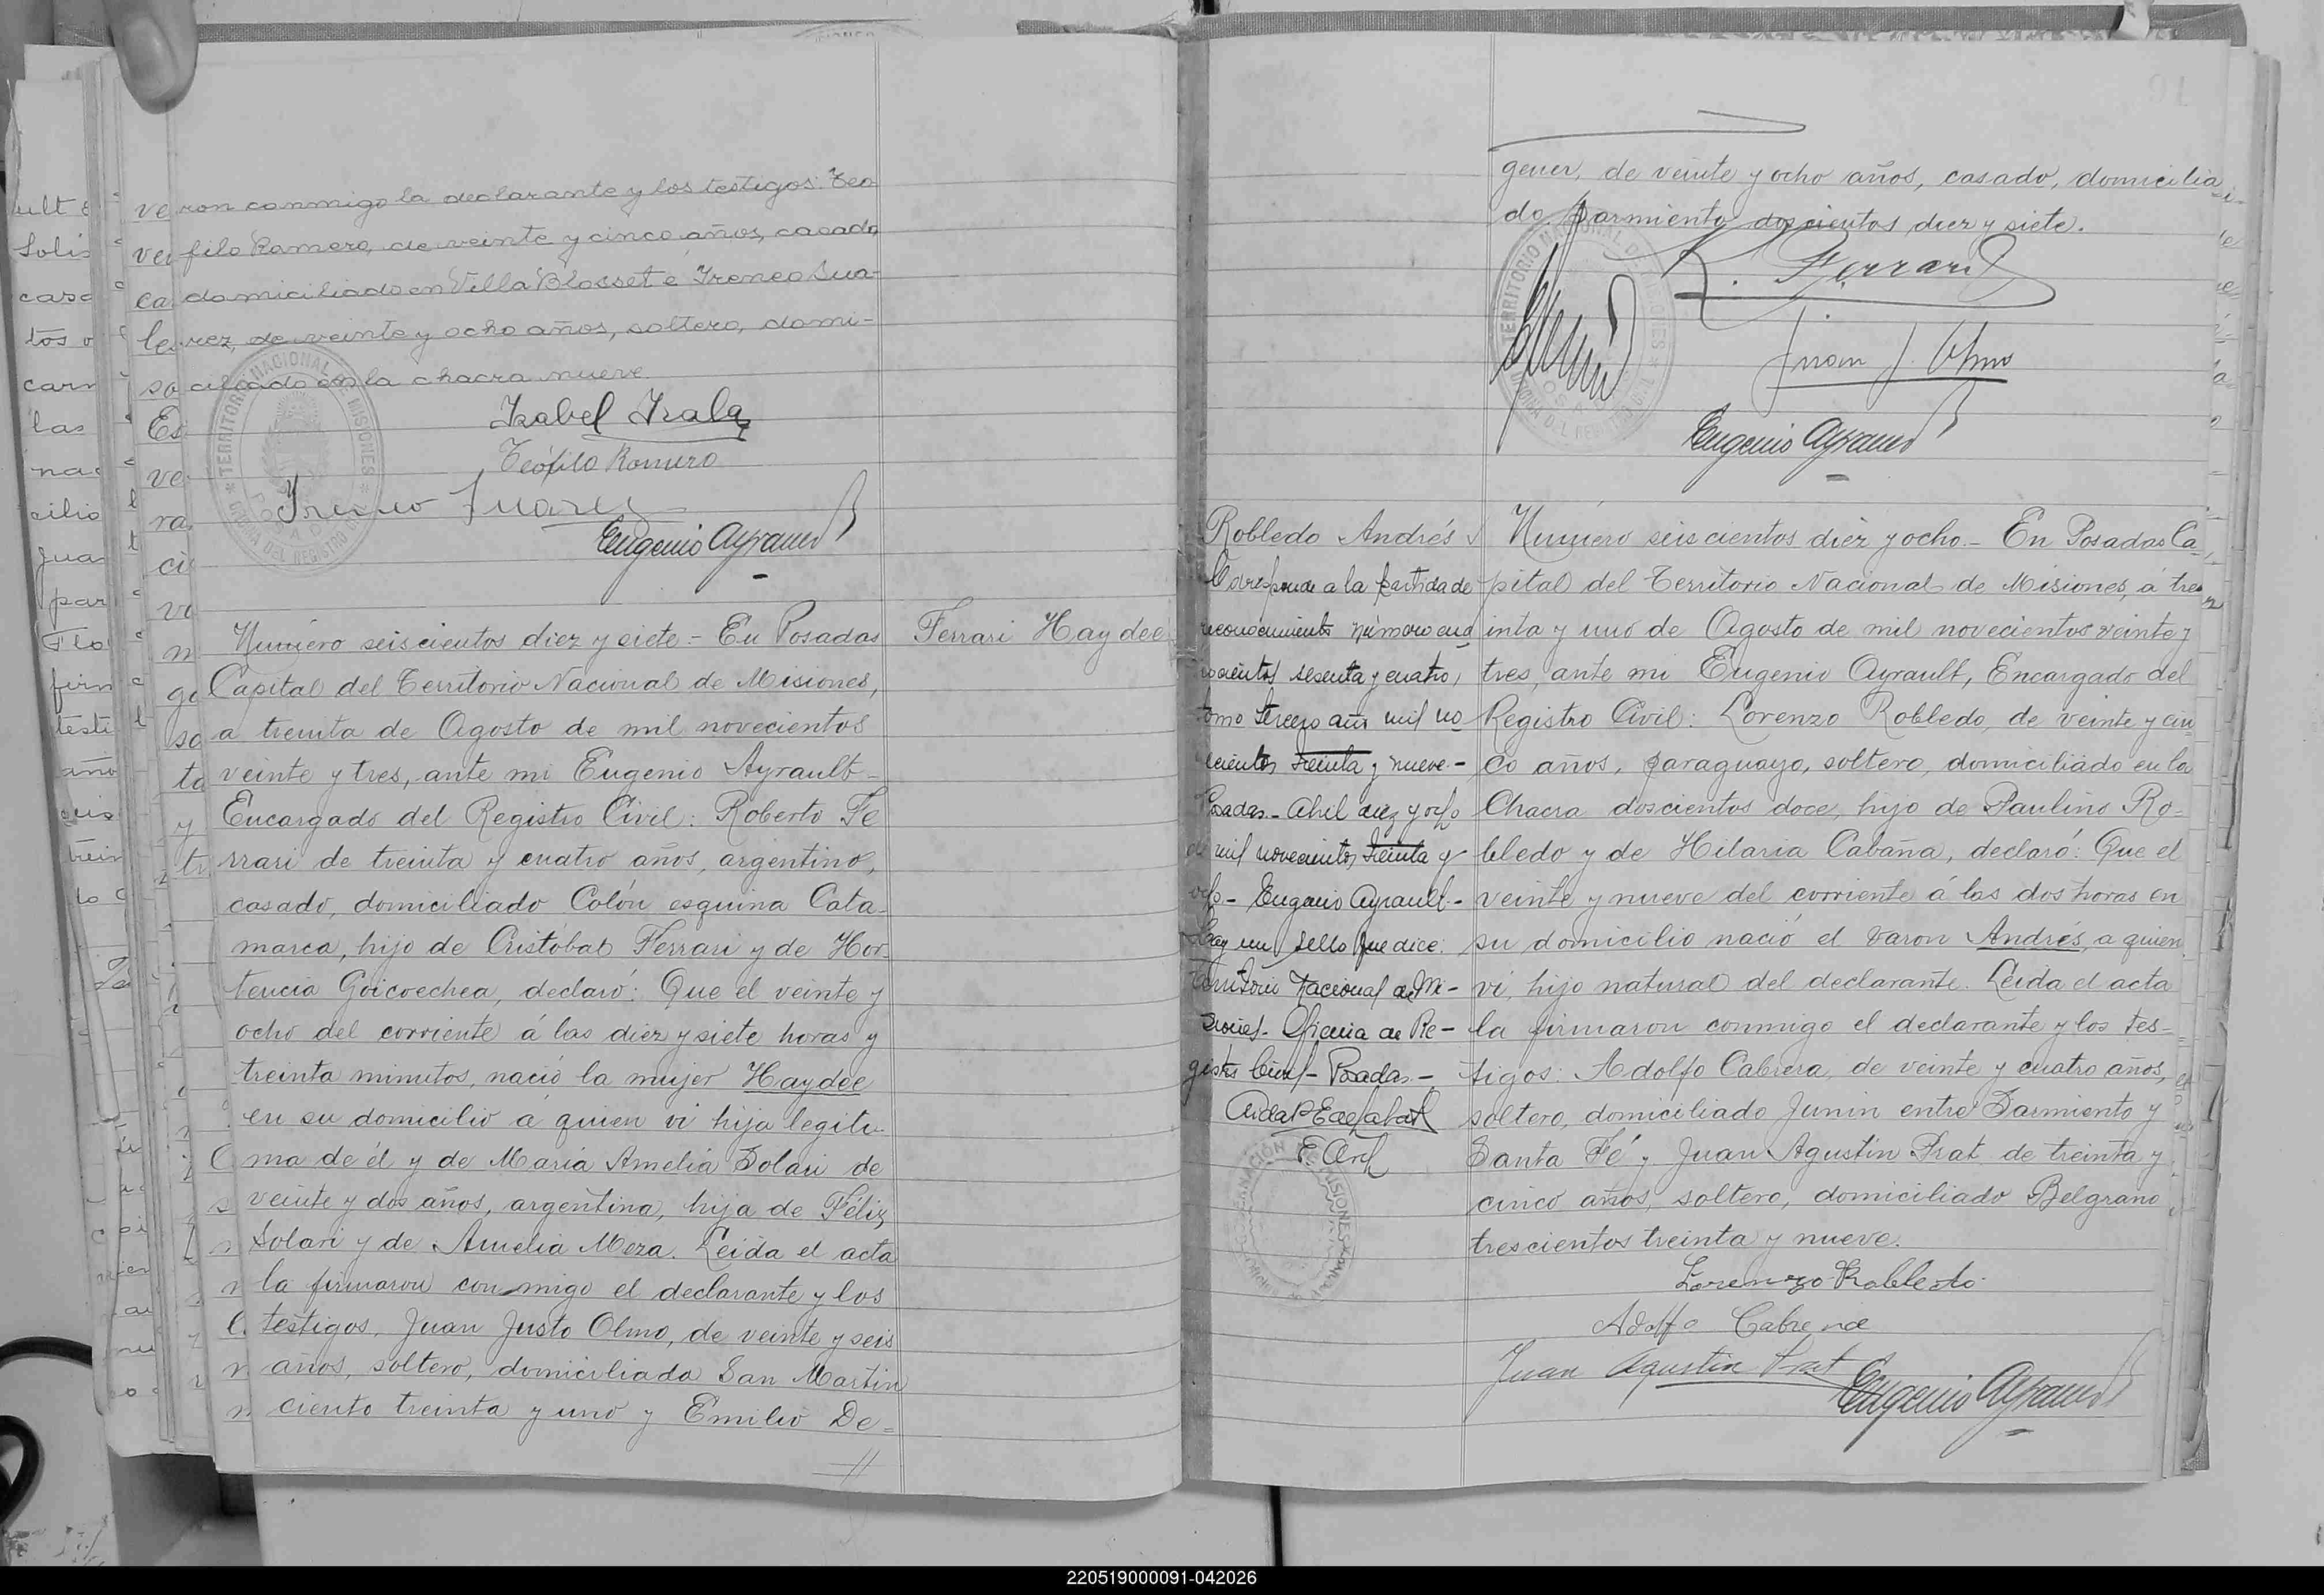 ron conmigo la declarante y los testigos: Teo
filo Romero, de veinte y cinco años, casado,
domiciliado en Villa Blosset é Ireneo Sua
rez, de veinte y ocho años, soltero, domi-
ciliado en la chacra nueve.
TERRITORIO NACIONAL DE MISIONES
POSADAS
OFICINA DEL REGISTRO CIVIL
Isabel Irala
Teófilo Romero
Ireneo Suarez
Eugenio Ayrault
Ferrari Haydee
Número seiscientos diez y siete = En Posadas
Capital del Territorio Nacional de Misiones,
a treinta de Agosto de mil novecientos
veinte y tres, ante mi Eugenio Ayrault-
Encargado del Registro Civil: Roberto Fe
rrari de treinta y cuatro años, argentino,
casado, domiciliado Colón esquina Cata-
marca, hijo de Cristóbal Ferrari y de Hor-
tencia Goicoechea, declaró: Que el veinte y
ocho del corriente á las diez y siete horas y
treinta minutos, nació la mujer Haydée
en su domicilio a quien vi hija legiti-
ma de él y de Maria Amelia Solari de
veinte y dos años, argentina, hija de Féliz
Solari y de Amelia Meza. Leida el acta
la firmaron con migo el declarante y los
testigos. Juan Justo Olmo, de veinte y seis
años, soltero, domiciliado San Martin
ciento treinta y uno y Emilio De=
gener, de veinte y ocho años, casado, domicilia
do Sarmiento doscientos diez y siete.
R. Ferrari
Juan J. Olmo
Eugenio Ayrault
Robledo Andrés
Corresponde a la partida de
reconocimiento número cua
trocientos sesenta y cuatro,
tomo tercero año mil no
vecientos treinta y nueve.-
Posadas.- Abril diez y ocho
de mil novecientos treinta y
ocho- Eugenio Ayrault.-
Hay un sello que dice:
Territorio Nacional de Mi-
siones- Oficina de Re-
gistro Civil- Posadas.-
Número seiscientos diez y ocho.- En Posadas Ca
pital del Territorio Nacional de Misiones, á tre
inta y uno de Agosto de mil novecientos veinte y
tres, ante mi Eugenio Ayrault, Encargado del
Registro Civil: Lorenzo Robledo, de veinte y cin
co años, paraguayo, soltero, domiciliado en la
Chacra doscientos doce, hijo de Paulino Ro=
bledo y de Hilaria Cabaña, declaró: Que el
veinte y nueve del corriente á las dos horas en
su domicilio nació el varon Andrés, a quien
vi, hijo natural del declarante. Leida el acta
la firmaron conmigo el declarante y los tes=
tigos: Adolfo Cabrera, de veinte y cuatro años,
soltero, domiciliado Junin entre Sarmiento y
Santa Fé y Juan Agustin Prat de treinta y
cinco años, soltero, domiciliado Belgrano
trescientos treinta y nueve.
Lorenzo Robledo
Adolfo Cabrera
Juan Agustin Prat
Eugenio Ayrault
220519000091-042026